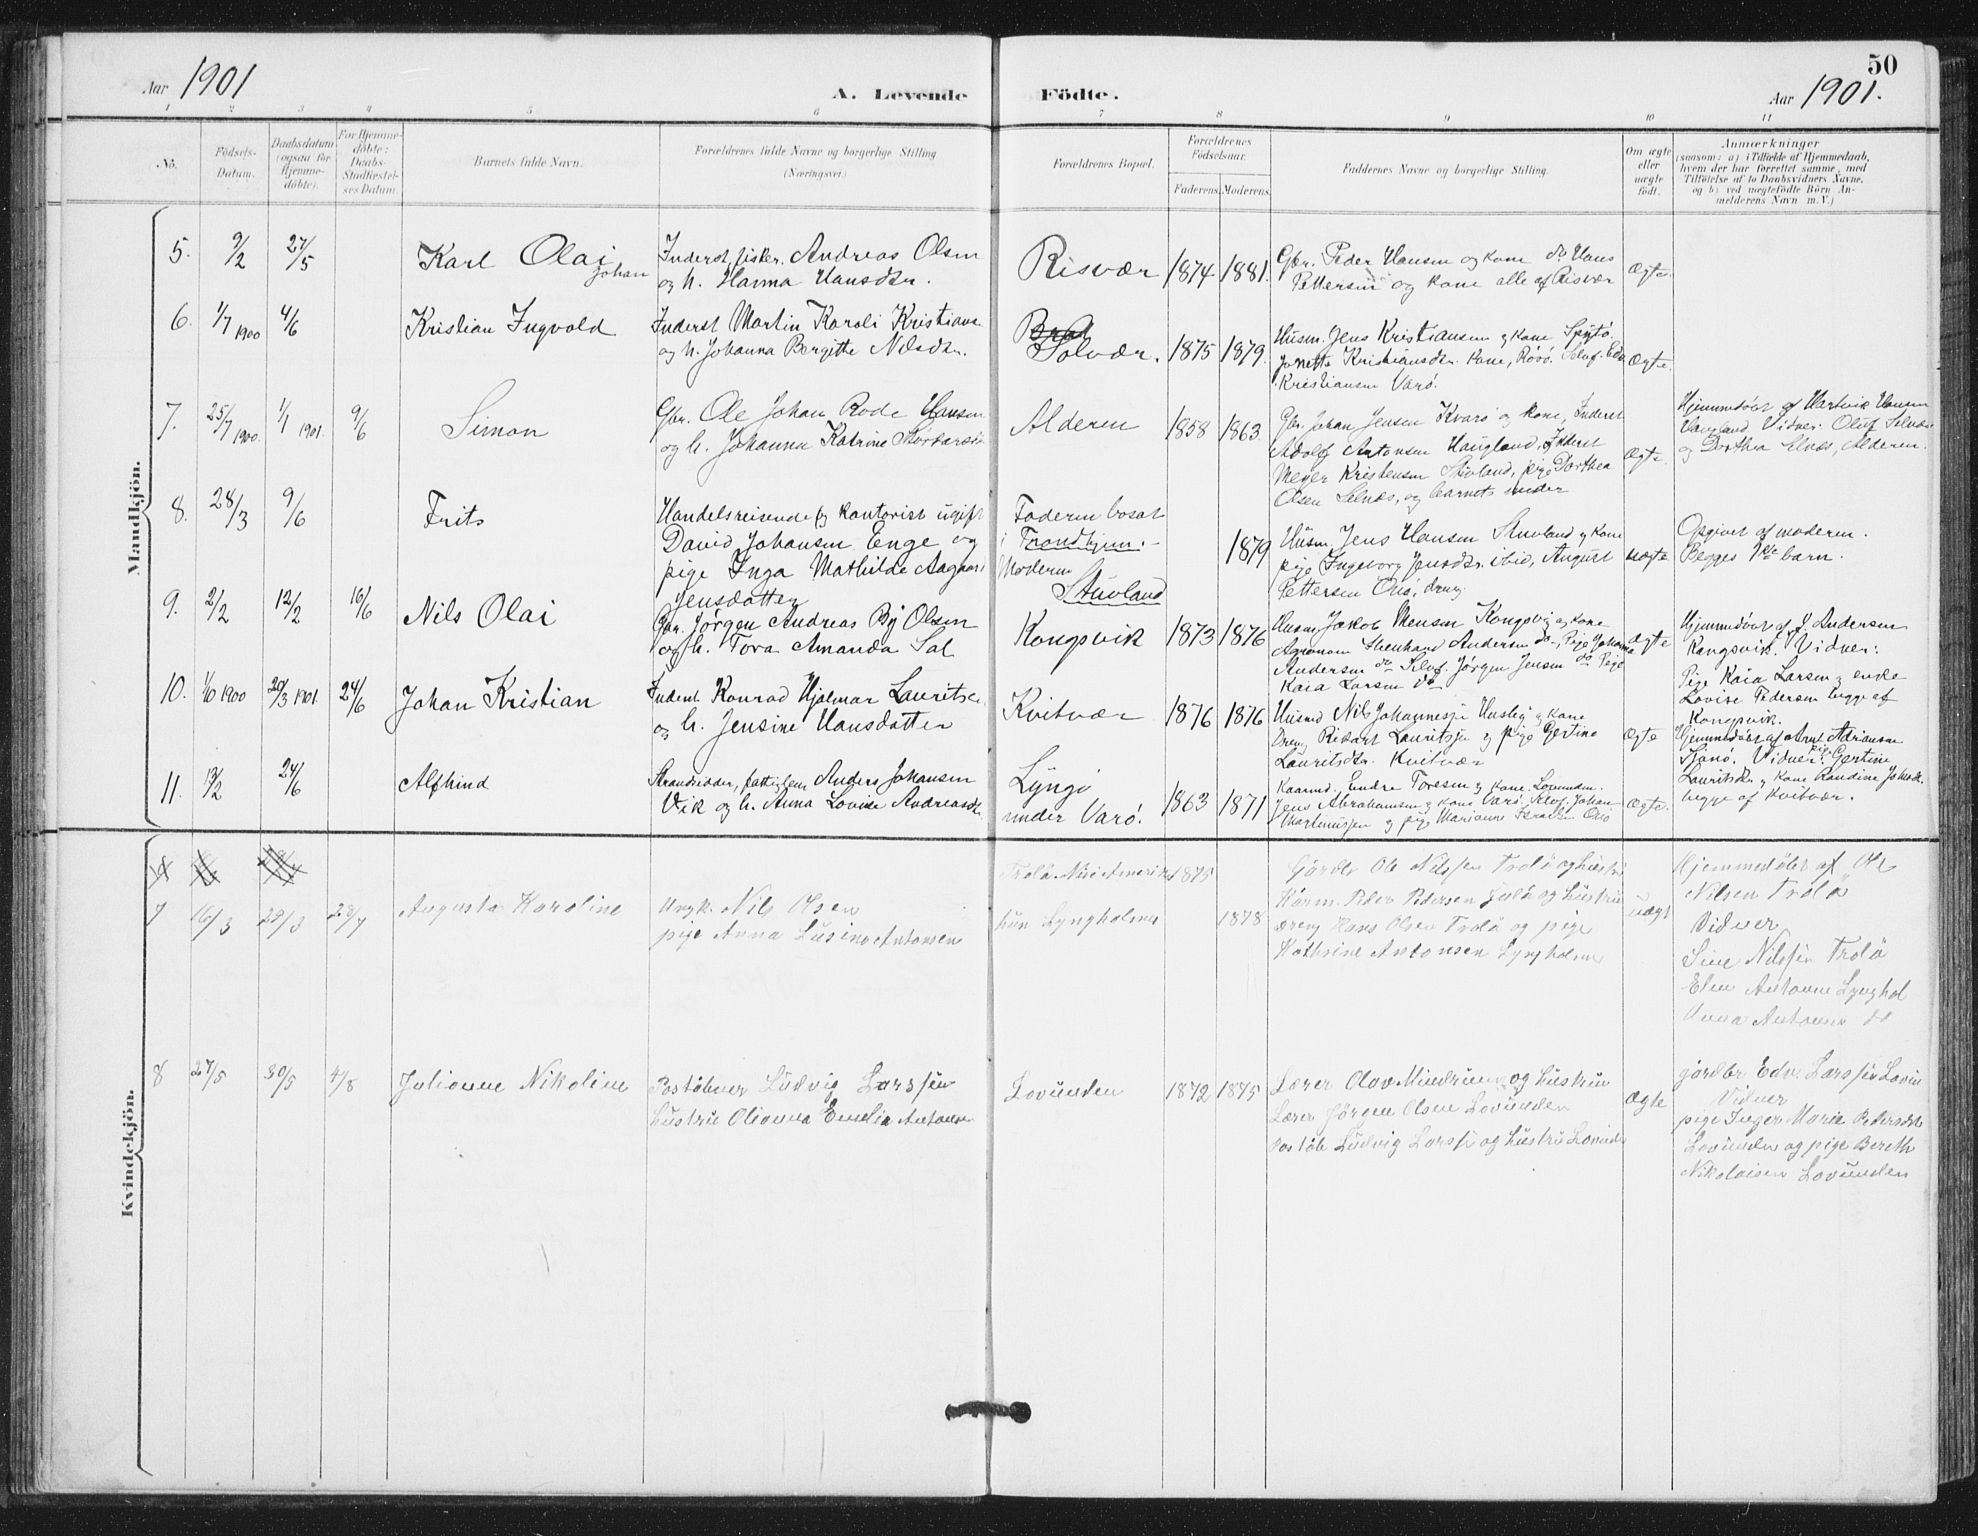 50
Aar 1901
A. Levende Födte.
Aar 1901.
1 2 3 4 5 6 7 8 9 10 11
No.
Födsels-Datum.
Daabsdatum (ogsaa for Hjemmedöbte).
For Hjemmedöbte: Daabs-Stadfæstelses Datum.
Barnets fulde Navn.
Forældrenes fulde Navne og borgerlige Stilling
(Næringsvei.)
Forældrenes Bopæl.
Forældrenes Födselsaar.
Faderens. Moderens.
Faddernes Navne og borgerlige Stilling.
Om ægte eller uægte födt.
Anmærkninger
(saasom: a) i Tilfælde af Hjemmedaab,
hvem der har forrettet samme, med
Tilföielse af to Daabsvidners Navne,
og b) ved uægtefödte Börn An-
melderens Navn m. V.)
Mandkjön.
5. 9/2 27/5 Karl Olai Johan
Inderst, fisker. Andreas Olsen
og h. Hanna Hansdtr.
Risvær 1874 1881.
Gbr. Peder Hansen og kone do Hans
Pettersen og kone alle af Risvær
Ægte.
6. 1/7 1900 4/6 Kristian Ingvold
Inderst Martin Karoli Kristians.
og h. Johanna Bergitte Nilsdtr.
Solvær. 1875 1879.
Husm. Jens Kristiansen og kone
Jonette Kristiansdtr. kone,
Kristiansen Varö.
Ægte.
7. 25/7 1900. 1/1 1901. 9/6 Simon
Gbr. Ole Johan Rode Hansen
og h. Johanna Katrine
Alderen 1858 1863
Gbr. Johan Jensen Kvarö og kone, Inderst
Adolf Antonsen Haugland, Inderst
Meyer Kristensen Stuvland, pige Dorthea
Olsen Selnæs, og barnets moder
Ægte.
Hjemmedöbt af Hartvik Hansen
Haugland. Vidner: Oluf
og Dorthea Alderen.
8. 28/3 9/6 Frits
Handelsreisende og kontorist ugift
David Johansen Enge og
pige Inga Mathilde Aagaard
Jensdatter
Faderen bosat
i Trondhjem.
Moderen
Stuvland
1879
Husm. Jens Hansen Stuvland og kone
pige Ingeborg Jensdtr. ibid, August
Pettersen dreng
uægte
Opgivet af moderen.
Begges 1ste barn.
9. 2/2 12/2 16/6 Nils Olai
Gbr. Jörgen Andreas By Olsen
og h. Tora Amanda Sal
Kongsvik 1873 1876
Husm. Jakob Kongsvig og kone
Agronom Andersen do, Pige Johanna
Andersen do Jörgen Jensen do Pige
Kaia Larsen do
Ægte
Hjemmedöbt af J Andersen
Kongsvik. Vidner:
Pige Kaia Larsen og enke
Lovise Pedersen begge af
Kongsvik.
10. 1/10 1900 20/3 1901. 24/6 Johan Kristian
Inderst Konrad Hjalmar Lauritse.
og h. Jensine Hansdatter
Kvitvær 1876 1876
Husmd Nils Johannesse og kone
Dreng Rikart Lauritsen og pige Gertine
Lauritsdtr. Kvitvær
Ægte
Hjemmedöbt af Adriansen
Vidner: Pige Gertine
Lauritsdtr og kone Randine
begge af Kvitvær.
11. 13/2 24/6 Alfhind
Strandsidder, fattiglem Anders Johansen
Vik og h. Anna Lovise Andreasdtr
Lyngö
under Varö. 1863 1871
Kaarmd. Endre Toresen og kone Lovunden.
Jens Abrahamsen og kone Varö. Johan
Martinussen og pige Marianne
Ægte.
Kvindekjön.
7 16/3 29/3 28/7 Augusta Karoline
Ungk. Nils Olsen
pige Anna Lusine Antonsen
1875
hun Lyngholmen 1878
Gårdbr Ole Nilssen Trolö og hustru
Kårm. Peder Pedersen og hustru
dreng Hans Olsen Trolö og pige
Kathrine Antonsen Lyngholmen
uægt
Hjemmedöbt af Ole
Nilsen Trolö
Vidner
Sine Nilssen Trolö
Antonsen Lynghol
Anna Antonsen do
8 27/5 30/5 4/8 Julianne Nikoline
Poståbner Ludvig Larssen
hustru Olianna Emelie Antonsen
Lovunden 1872 1875
Lærer Olav og hustru
Lærer Jörgen Olsen Lovunden
Poståb Ludvig Larssen og hustru Lovunde
Ægte
gårdbr Edv. Larssen Lovun
Vidner
pige Inger Marie Pedersdtr
Lovunden og pige Bereth
Nikolaisen Lovunden